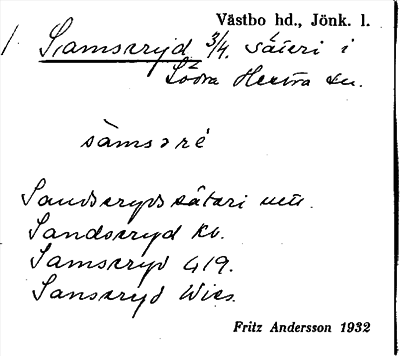 Västbo hd., Jönk. l.
1. Samseryd 3/4. säteri i
Södra Hestra sn.
sàmsəré
Sandseryds säteri
Sandseryd kv.
Samseryd G 19.
Sanseryd Wies.
Fritz Andersson 1932